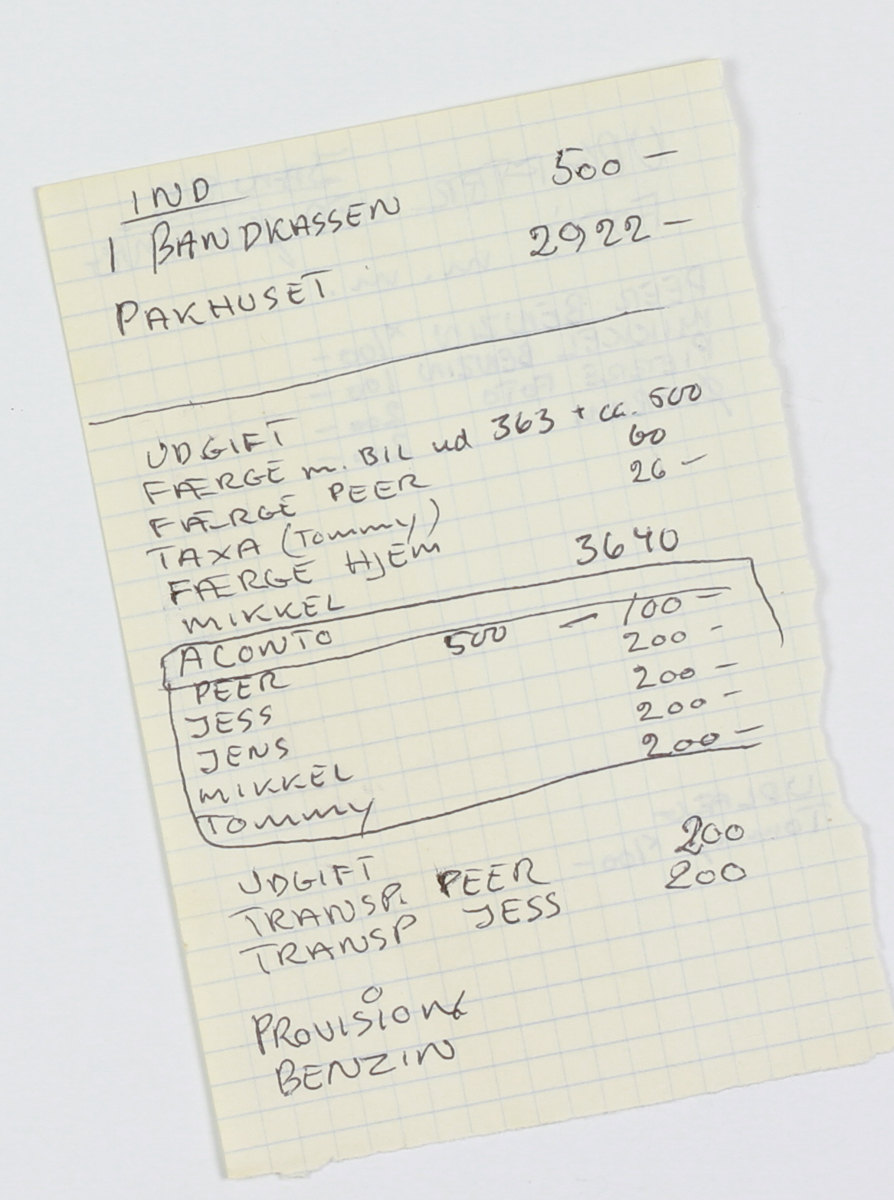 IND
I BANDKASSEN 500 —
PAKHUSET 2922 —
UDGIFT
FÆRGE m. BIL ud 363 + ca. 500
FÆRGE PEER 60
TAXA (Tommy) 26 —
FÆRGE HJEM
MIKKEL 3640
ACONTO
PEER 500 — 100 —
JESS 200 —
JENS 200 —
MIKKEL 200 —
TOMMY 200 —
UDGIFT
TRANSP. PEER 200
TRANSP JESS 200
PROVISION
BENZIN